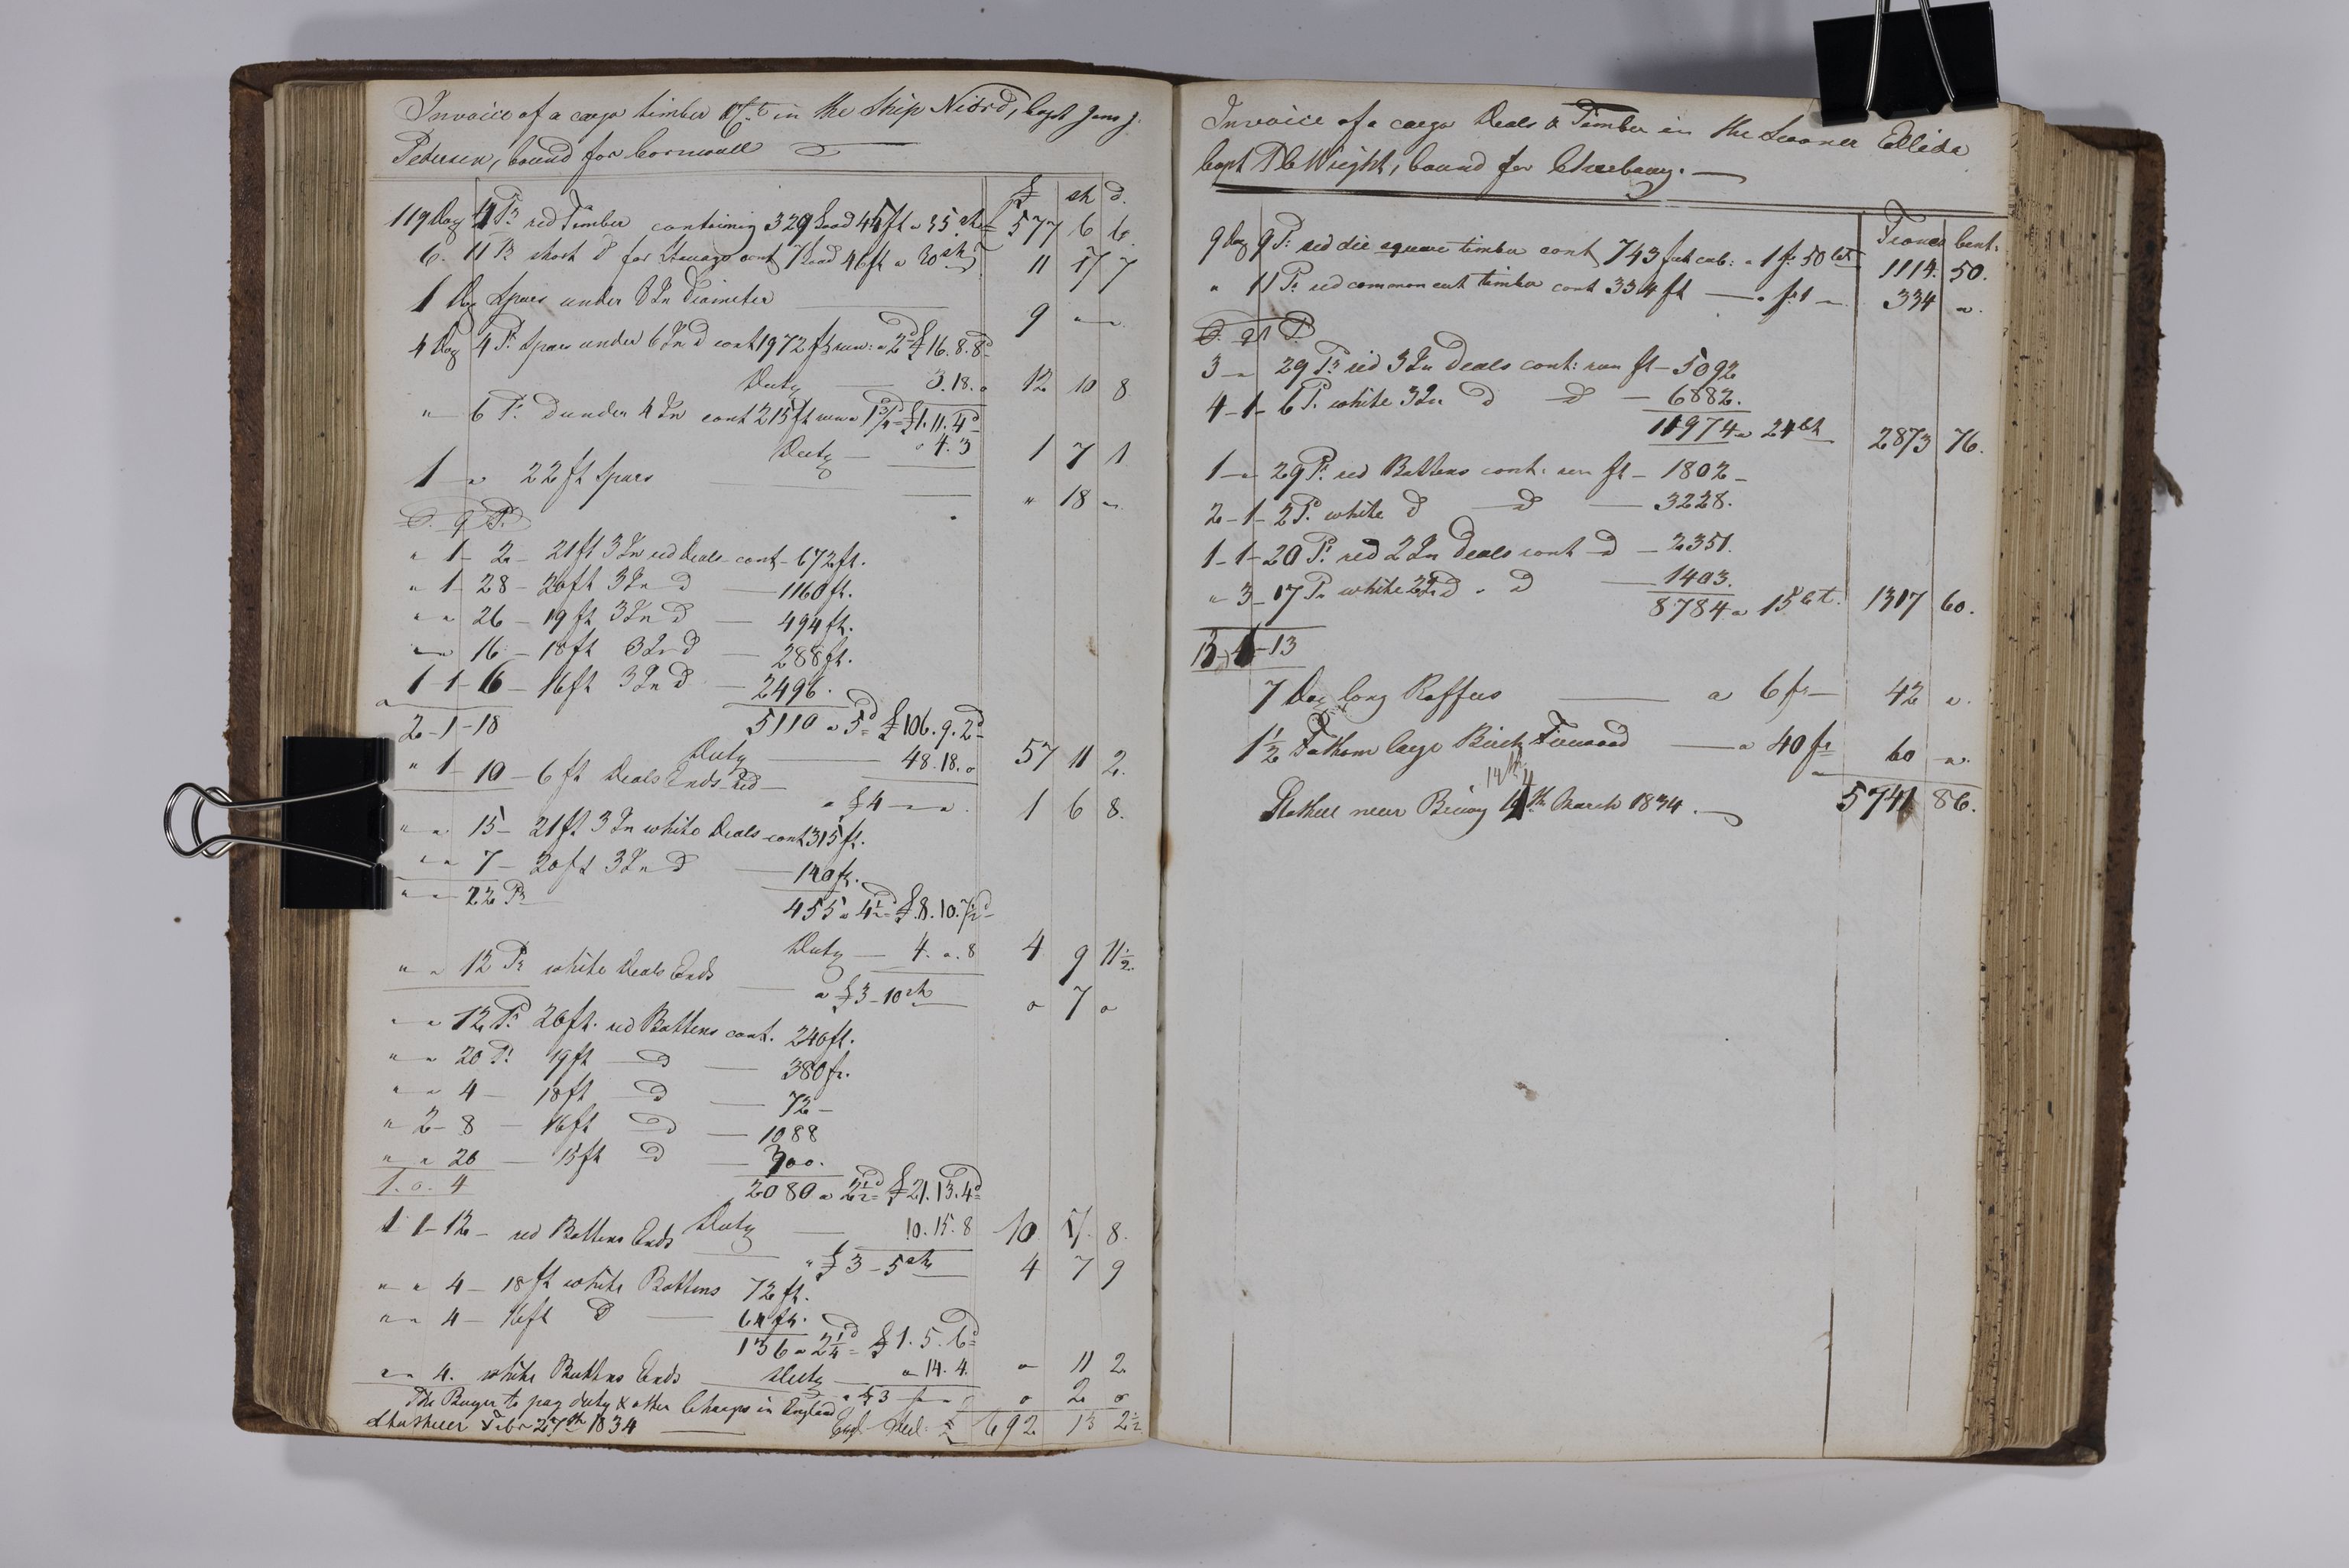 Invoice of a cargo timber &c in the Ship Niord, Capt Jens J.
Pedersen, bound for Cornwall
£ sh d.
119 Doz 4 Ps red Timber containing 329 Load 45 ft a 35 sh 577 6 6.
6. 11 Ps short d for Stowage cont 7 Load 46 ft a 30 sh 11 17 7
1 Doz Spars under 8 In Diameter 9 " "
4 Doz 4 Ps Spars under 6 In d cont 1972 ft run: a 2d £16.8.8d
Duty 3.18.0 12 10 8
" 6 Ps d under 4 In cont 215 ft run a 1 3/4d £1.11.4d
Duty 0 4.3 1 7 1
1 " 22 ft Spars " 18 "
" 1 - 2 - 21 ft 3 In red Deals cont - 672 ft.
" 1 - 28 - 20 ft 3 In d 1160 ft.
" " 26 - 19 ft 3 In d 494 ft.
" " 16 - 18 ft 3 In d 288 ft.
1 - 1 - 16 - 16 ft 3 In d 2496.
2 - 1 - 18 5110 a 5d £106.9.2d
Duty 48.18.0 57 11 2.
" 1 - 10 - 6 ft Deals Ends red a £4 " " 1 6 8.
" " 15 - 21 ft 3 In white Deals cont 315 ft.
" " 7 - 20 ft 3 In d 140 ft.
" " 22 Ps 455 a 4 1/2d £8.10.7 1/2d
Duty 4. " .8 4 9 11 1/2.
" " 12 Ps white Deals Ends a £3 - 10 sh 0 7 0
" " 12 Ps 20 ft. red Battens cont. 240 ft.
" " 20 Ps 19 ft d 380 ft.
" " 4 - 18 ft d 72 -
" 2 - 8 - 16 ft d 1088
" " 20 - 15 ft d 300.
1. 0. 4 2080 a 2 1/2d £21.13.4d
Duty 10.15.8 10 17. 8.
1 1 - 12 - red Battens Ends a £3 - 5 sh 4 7 9
" " 4 - 18 ft white Battens 72 ft.
" " 4 - 16 ft d 64 ft.
136 a 2 1/4d £1.5.6d
Duty " 14.4. " 11 2
" " 4. white Battens Ends a £3 0 2 0
The Buyer to pay duty & other Charges in England
Febr 27th 1834 £ 692 13 2 1/2
Invoice of a cargo Deals & Timber in the Scooner Ellida
Capt Wright, bound for Cherbourg.
Francs Cent.
9 Doz 9 Ps red die square timber cont 743 feet cub: a 1 fr 50 Ct 1114. 50.
" 11 Ps red common cut timber cont 334 ft a fr 1 " 334 ".
3 - " 29 Ps red 3 In Deals cont: run ft - 5092
4 - 1 - 6 Ps white 3 In d d 6882.
11974 a 24 Ct 2873 76.
1 - " 29 Ps red Battens cont: run ft - 1802 -
2 - 1 - 2 Ps white d d 3228.
1 - 1 - 20 Ps red 2 In Deals cont d - 2351.
" 3 - 17 Ps white 2 In d " d 1403.
8784 a 15 Ct. 1317 60.
13 - 1 - 13
7 Doz long Raffers a 6 fr 42 ".
1 1/2 Fathom large Birch Firewood a 40 fr 60 ".
14th
near 14th March 1834. 5741 86.